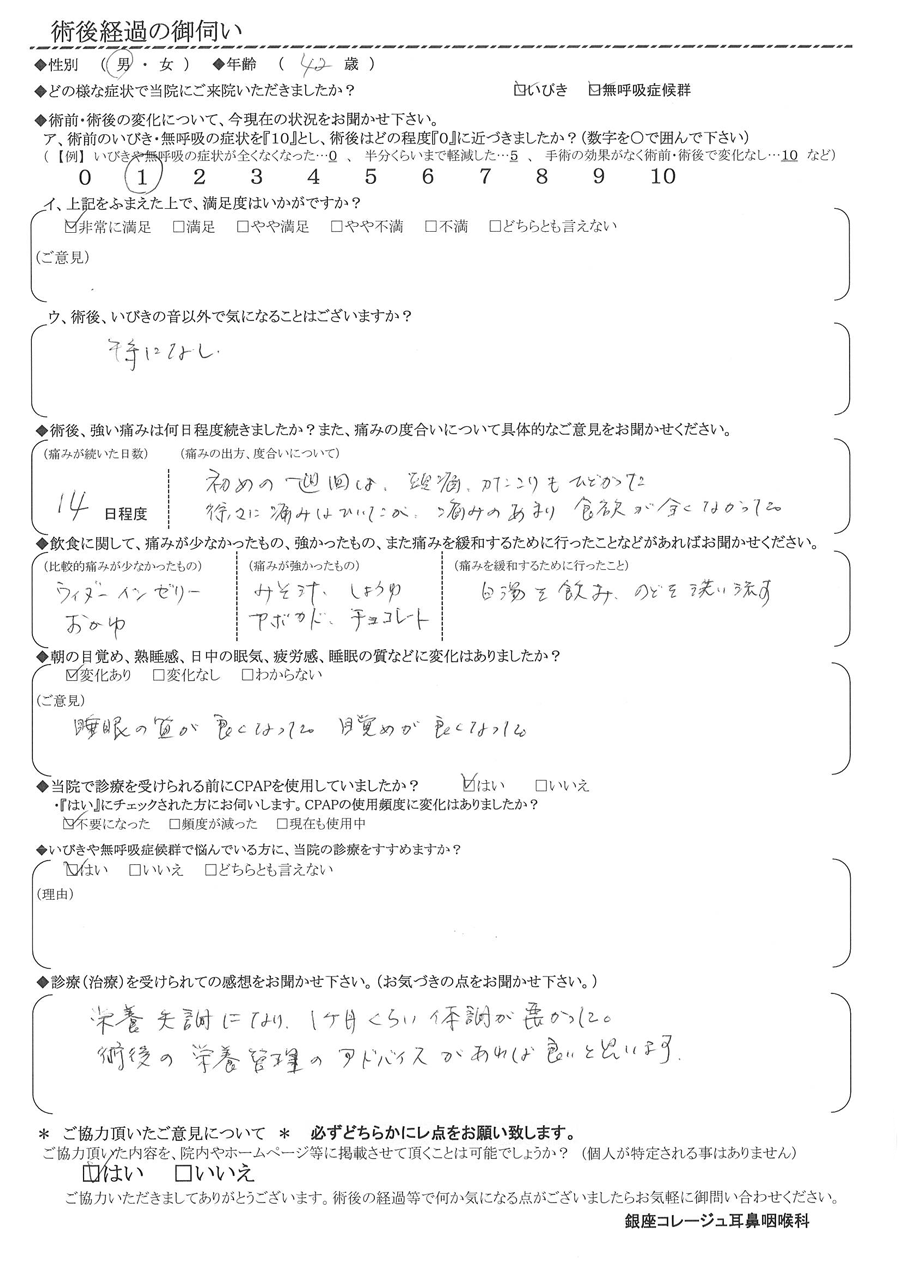 術後経過の御伺い
◆性別 （ 男 ・ 女 ） ◆年齢 （ 42 歳 ）
◆どの様な症状で当院にご来院いただきましたか？ ☑いびき ☑無呼吸症候群
◆術前・術後の変化について、今現在の状況をお聞かせ下さい。
ア、術前のいびき・無呼吸の症状を『10』とし、術後はどの程度『0』に近づきましたか？（数字を〇で囲んで下さい）
（【例】 いびきや無呼吸の症状が全くなくなった…0 、 半分くらいまで軽減した…5 、 手術の効果がなく術前・術後で変化なし…10 など）
0 1 2 3 4 5 6 7 8 9 10
イ、上記をふまえた上で、満足度はいかがですか？
☑非常に満足 □満足 □やや満足 □やや不満 □不満 □どちらとも言えない
（ご意見）
ウ、術後、いびきの音以外で気になることはございますか？
特になし.
◆術後、強い痛みは何日程度続きましたか？また、痛みの度合いについて具体的なご意見をお聞かせください。
（痛みが続いた日数） （痛みの出方、度合いについて）
初めの一週間は、頭痛、肩こりもひどかった
14 日程度 徐々に痛みはひいたが、痛みのあまり食欲が全くなかった。
◆飲食に関して、痛みが少なかったもの、強かったもの、また痛みを緩和するために行ったことなどがあればお聞かせください。
（比較的痛みが少なかったもの） （痛みが強かったもの） （痛みを緩和するために行ったこと）
ウィダーインゼリー みそ汁、しょうゆ 白湯を飲み、のどを洗い流す
おかゆ アボカド、チョコレート
◆朝の目覚め、熟睡感、日中の眠気、疲労感、睡眠の質などに変化はありましたか？
☑変化あり □変化なし □わからない
（ご意見）
睡眠の質が良くなった。目覚めが良くなった。
◆当院で診療を受けられる前にCPAPを使用していましたか？ ☑はい □いいえ
・『はい』にチェックされた方にお伺いします。CPAPの使用頻度に変化はありましたか？
☑不要になった □頻度が減った □現在も使用中
◆いびきや無呼吸症候群で悩んでいる方に、当院の診療をすすめますか？
☑はい □いいえ □どちらとも言えない
（理由）
◆診療（治療）を受けられての感想をお聞かせ下さい。（お気づきの点をお聞かせ下さい。）
栄養失調になり、1ヶ月くらい体調が悪かった。
術後の栄養管理のアドバイスがあれば良いと思います.
＊ ご協力頂いたご意見について ＊ 必ずどちらかにレ点をお願い致します。
ご協力頂いた内容を、院内やホームページ等に掲載させて頂くことは可能でしょうか？ （個人が特定される事はありません）
☑はい □いいえ
ご協力いただきましてありがとうございます。術後の経過等で何か気になる点がございましたらお気軽に御問い合わせください。
銀座コレージュ耳鼻咽喉科